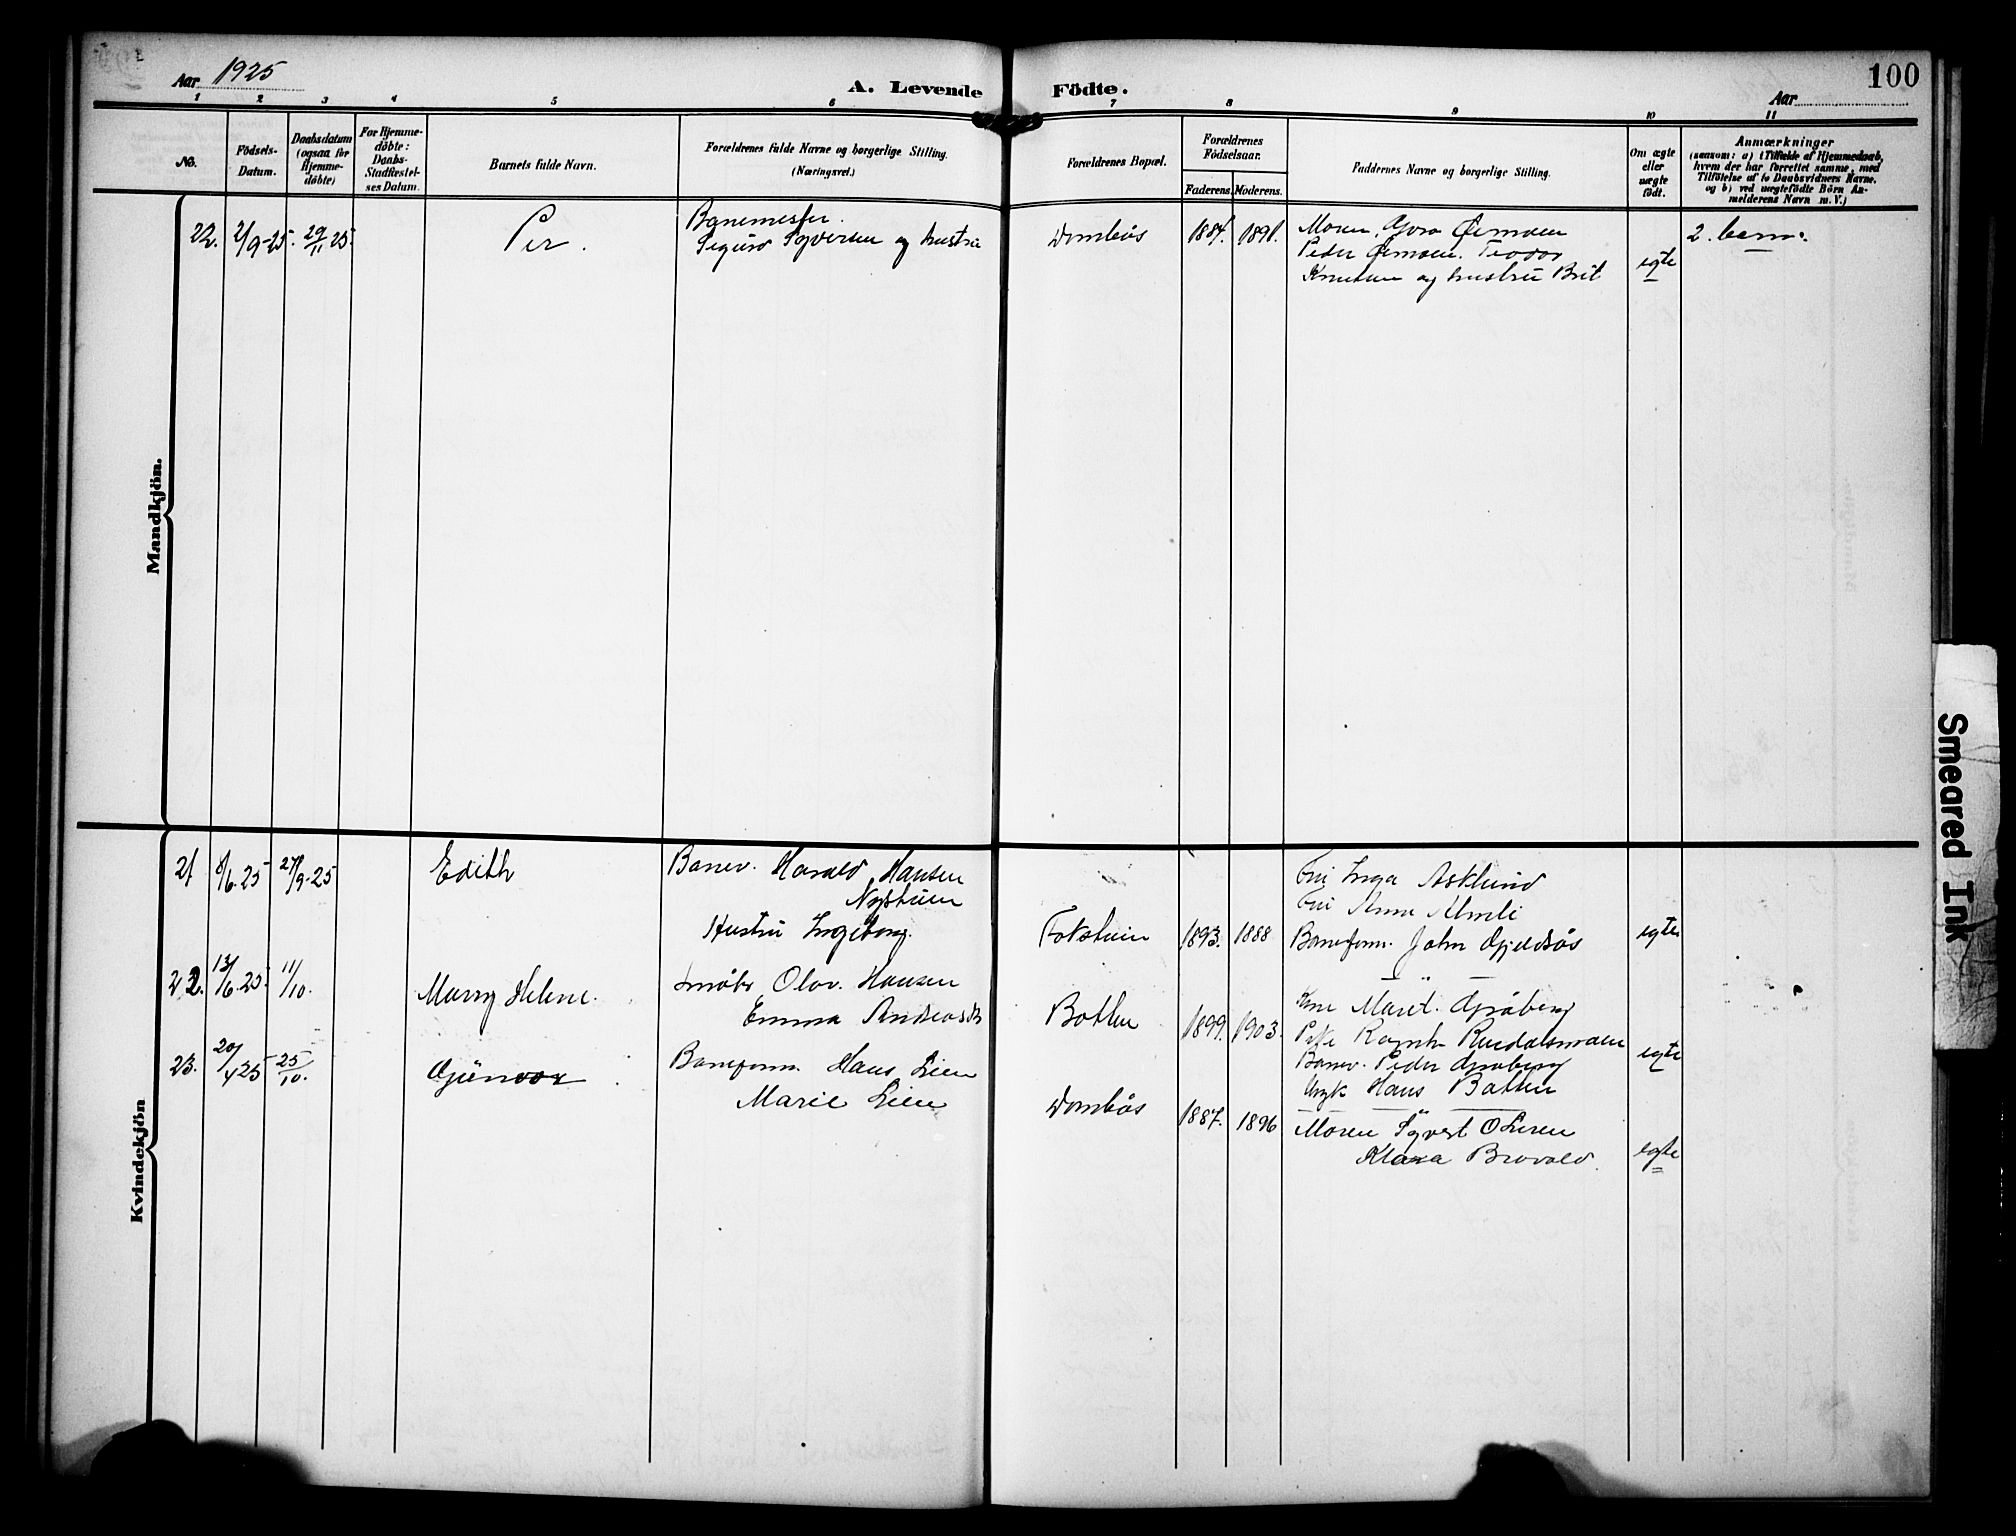 100
Aar 1925
A. Levende Födte.
Aar
1 2 3 4 5 6 7 8 9 10 11
No.
Födsels-
Datum.
Daabsdatum
(ogsaa for
Hjemme-
döbte)
For Hjemme-
döbte:
Daabs-
Stadfæstel-
ses Datum.
Barnets fulde Navn.
Forældrenes fulde Navne og borgerlige Stilling.
(Næringsvei.)
Forældrenes Bopæl.
Forældrenes
Födselsaar.
Faderens. Moderens.
Faddernes Navne og borgerlige Stilling.
Om ægte
eller
uægte
födt.
Anmærkninger
(saasom: a) i Tilfælde af Hjemmedaab,
hvem der har forrettet samme, med
Tilföielse af to Daabsvidners Navne.
og b) ved uægtefödte Börn An-
melderens Navn m. V.)
Mandkjön.
22. 2/9-25. 29/11 25. Per.
Banemester.
Sigurd Syversen og hustru
Dombås 1884. 1891.
Moren,
Peder Teodor
Knutsen og hustru Brit
egte
2. barn.
Kvindekjön
21 8/6-25 27/9-25 Edith
Banev. Harald Hansen
Nystuen
Hustru Ingeborg.
Fokstuen 1893. 1888
Fru Inga Asklund
Fru Anna Almli
Baneform. John Gjeldsås
egte
22. 13/6-25. 11/10. Marry Helene.
Småbr Olav. Hansen
Emma Andreasdt
Botten 1899. 1903.
Kone Marit.
Pike
Banev. Peder
Ungk Hans Botten
egte
23. 20/4 25 25/10. Gjenvor
Baneform. Hans Lien
Marie Lien
Dombås 1887. 1896
Moren Syvert
Klara Brovold.
egte
Smeared Ink